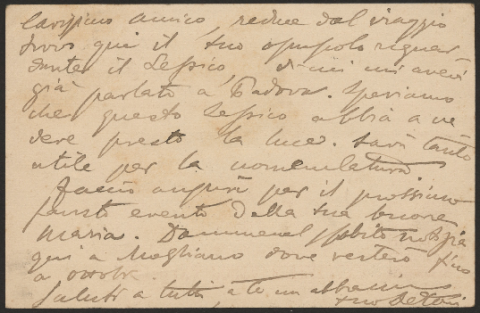 Carissimo amico, reduce dal viaggio
trovo qui il tuo opuscolo riguar-
dante il Lessico, di cui mi avevi
già parlato a Padova. Speriamo
che questo Lessico abbia a ve
dere presto la luce. Sarà tanto
utile per la nomenclatura.
Faccio auguri per il prossimo
fausto evento della tua buona
Maria. Dammene subito notizia
qui a Mogliano dove resterò fino
a ottobre.
Saluti a tutti, a te un abbraccio
tuo De Toni